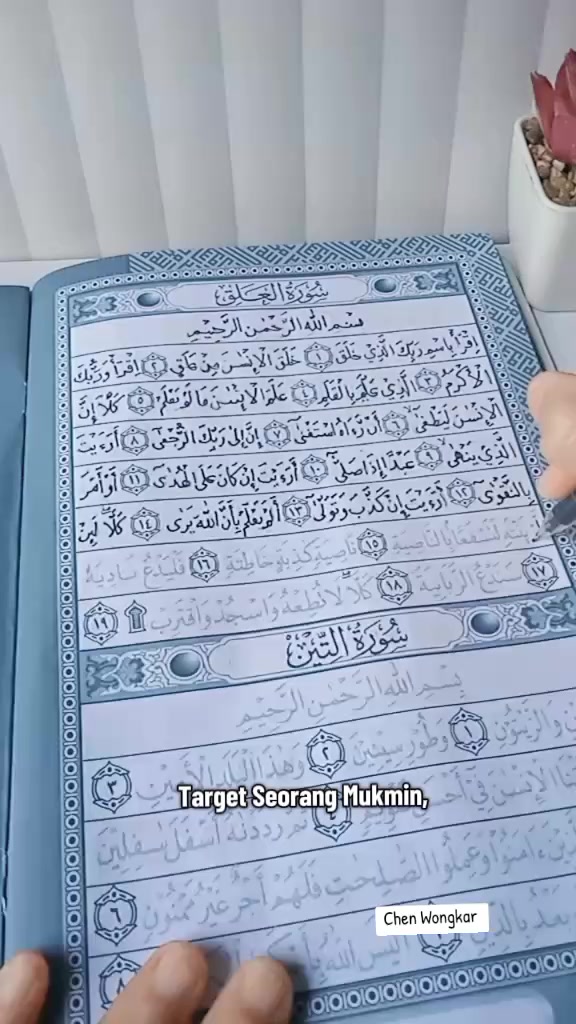 سُورَةُ الْعَلَقِ
بِسْمِ اللهِ الرَّحْمٰنِ الرَّحِيْمِ
اِقْرَأْ بِاسْمِ رَبِّكَ الَّذِي خَلَقَ ١ خَلَقَ الْاِنْسَانَ مِنْ عَلَقٍ ٢ اِقْرَأْ وَرَبُّكَ
الْاَكْرَمُ ٣ الَّذِي عَلَّمَ بِالْقَلَمِ ٤ عَلَّمَ الْاِنْسَانَ مَا لَمْ يَعْلَمْ ٥ كَلَّا اِنَّ
الْاِنْسَانَ لَيَطْغٰى ٦ اَنْ رَّاٰهُ اسْتَغْنٰى ٧ اِنَّ اِلٰى رَبِّكَ الرُّجْعٰى ٨ اَرَءَيْتَ
الَّذِي يَنْهٰى ٩ عَبْدًا اِذَا صَلّٰى ١٠ اَرَءَيْتَ اِنْ كَانَ عَلَى الْهُدٰى ١١ اَوْ اَمَرَ
بِالتَّقْوٰى ١٢ اَرَءَيْتَ اِنْ كَذَّبَ وَتَوَلّٰى ١٣ اَلَمْ يَعْلَمْ بِاَنَّ اللهَ يَرٰى ١٤ كَلَّا لَئِنْ
يَنْتَهِ لَنَسْفَعًا بِالنَّاصِيَةِ ١٥ نَاصِيَةٍ كَاذِبَةٍ خَاطِئَةٍ ١٦ فَلْيَدْعُ نَادِيَهُ
١٧ سَنَدْعُ الزَّبَانِيَةَ ١٨ كَلَّا لَا تُطِعْهُ وَاسْجُدْ وَاقْتَرِبْ ۩ ١٩
سُورَةُ التِّيْنِ
بِسْمِ اللهِ الرَّحْمٰنِ الرَّحِيْمِ
وَالزَّيْتُوْنِ ١ وَطُوْرِ سِيْنِيْنَ ٢ وَهٰذَا الْبَلَدِ الْاَمِيْنِ ٣
الْاِنْسَانَ فِي اَحْسَنِ تَقْوِيْمٍ ٤ ثُمَّ رَدَدْنٰهُ اَسْفَلَ سَافِلِيْنَ
اٰمَنُوْا وَعَمِلُوا الصّٰلِحٰتِ فَلَهُمْ اَجْرٌ غَيْرُ مَمْنُوْنٍ ٦
بَعْدُ بِالدِّيْنِ اَلَيْسَ اللهُ ٨
Target Seorang Mukmin,
Chen Wongkar